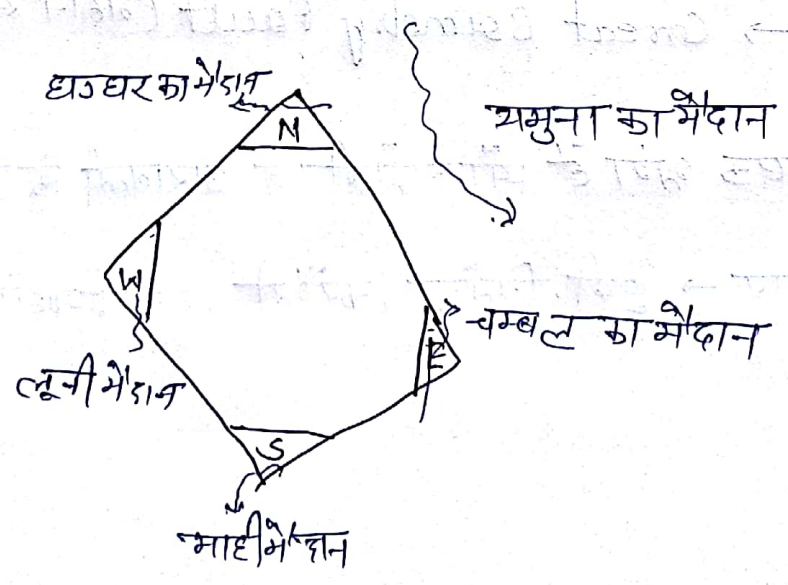 घग्घर का मैदान
N
यमुना का मैदान
W
चम्बल का मैदान
E
लूनी मैदान
S
माही मैदान